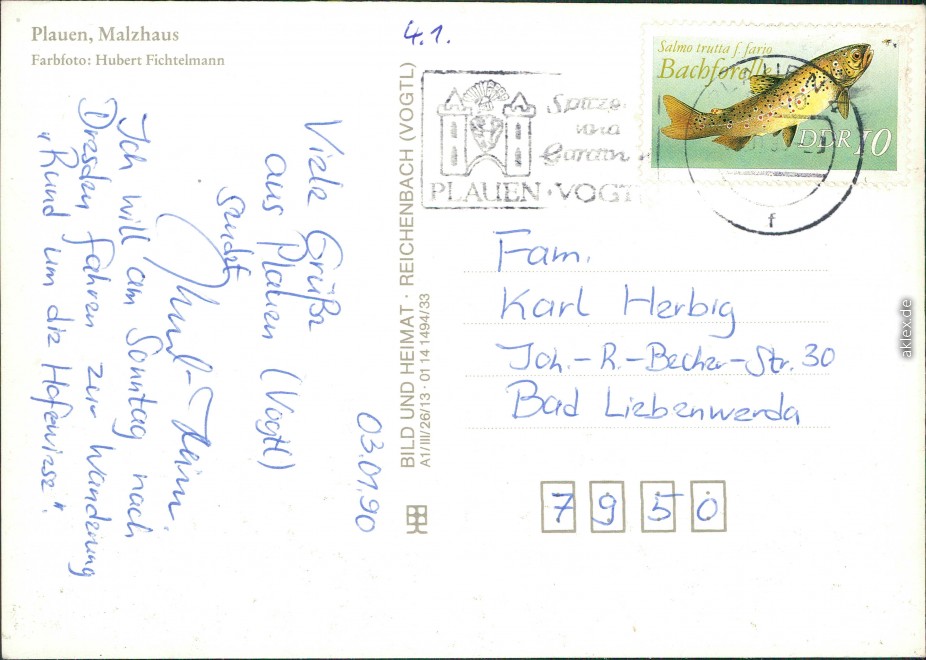 Plauen, Malzhaus
Farbfoto: Hubert Fichtelmann
4.1.
Salmo trutta f. fario
Bachforelle
DDR 10
Spitzen
und
Gardinen
PLAUEN · VOGT
f
03.01.90
Viele Grüße
aus Plauen (Vogtl)
sendet
Ich will am Sonntag nach
Dresden fahren zur Wanderung
„Rund um die Hofewiese".
BILD UND HEIMAT · REICHENBACH (VOGTL)
A1/III/26/13 · 01 14 1494/33
Fam.
Karl Herbig
Joh.-R.-Becher-Str. 30
Bad Liebenwerda
7950
aklex.de